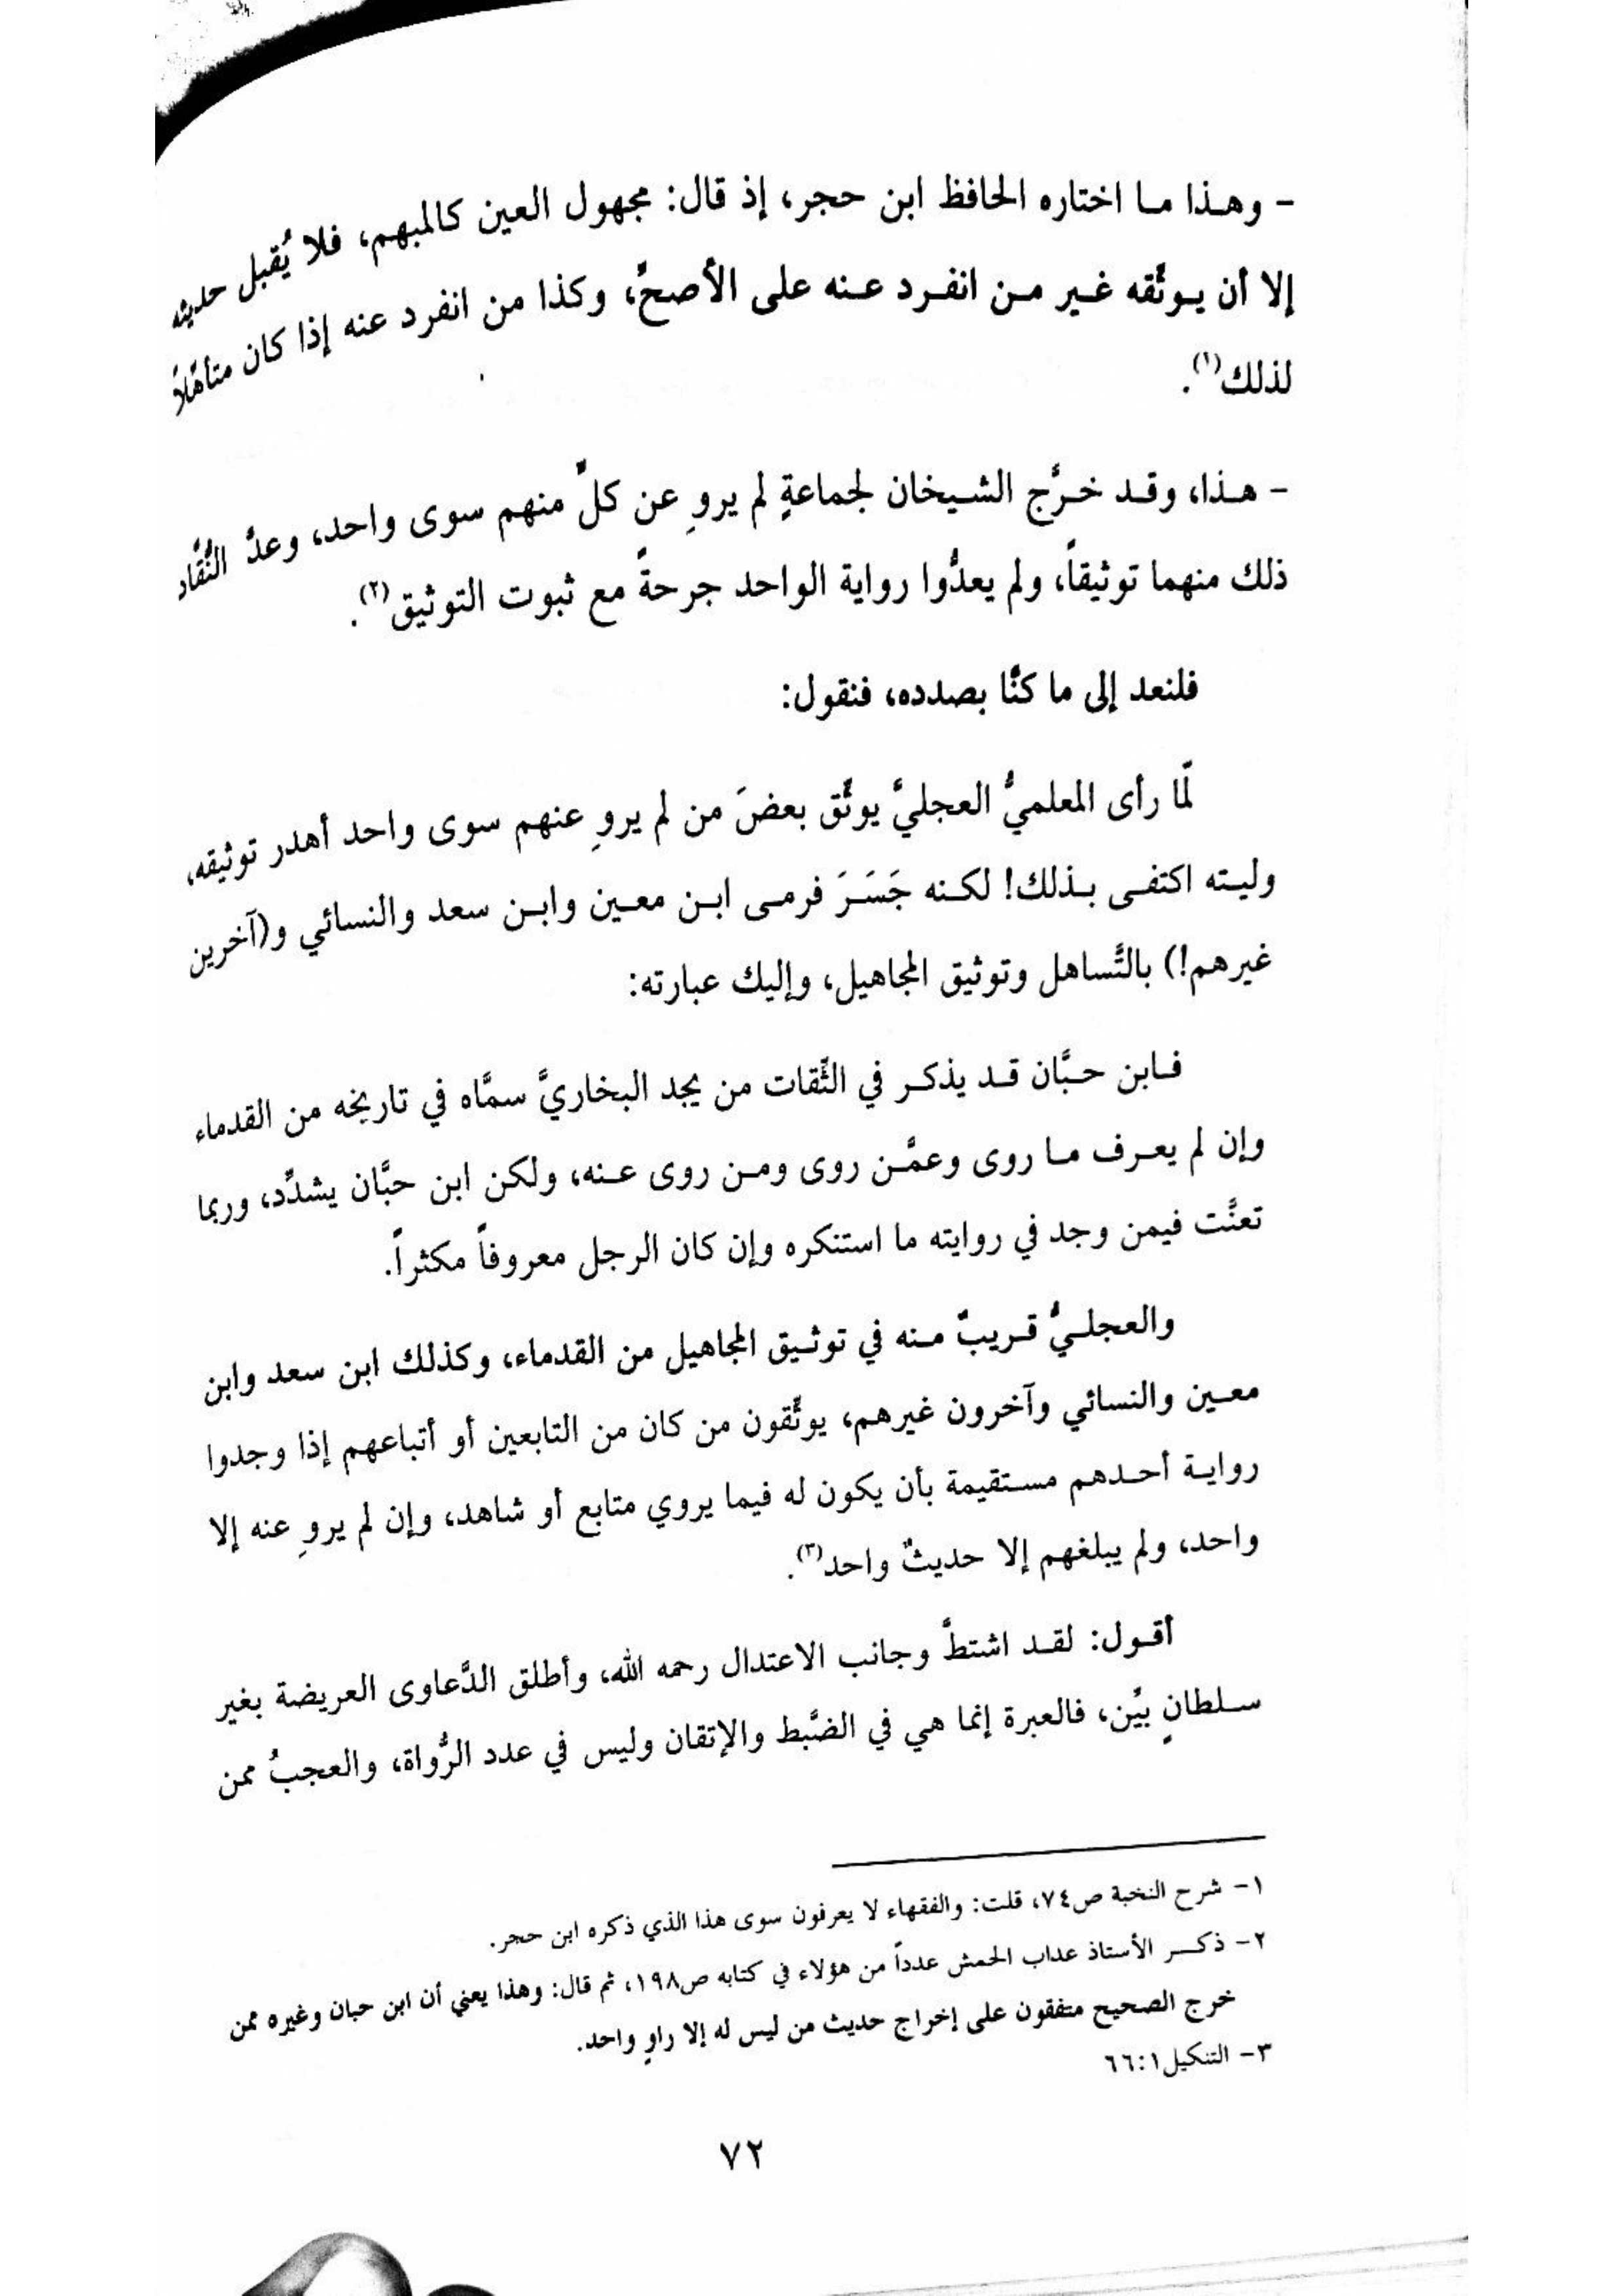 - وهذا ما اختاره الحافظ ابن حجر، إذ قال: مجهول العين كالمبهم، فلا يُقبل حديثه
إلا أن يوثِّقه غير من انفرد عنه على الأصحِّ، وكذا من انفرد عنه إذا كان متأهِّلاً
لذلك(١).
- هذا، وقد خرَّج الشيخان لجماعةٍ لم يروِ عن كلٍّ منهم سوى واحد، وعدَّ النُّقَّاد
ذلك منهما توثيقاً، ولم يعدُّوا رواية الواحد جرحةً مع ثبوت التوثيق(٢).
فلنعد إلى ما كنَّا بصدده، فنقول:
لمَّا رأى المعلميُّ العجليَّ يوثِّق بعضَ من لم يروِ عنهم سوى واحد أهدر توثيقه،
وليته اكتفى بذلك! لكنه جَسَرَ فرمى ابن معين وابن سعد والنسائي و(آخرين
غيرهم!) بالتَّساهل وتوثيق المجاهيل، وإليك عبارته:
فابن حبَّان قد يذكر في الثِّقات من يجد البخاريَّ سمَّاه في تاريخه من القدماء
وإن لم يعرف ما روى وعمَّن روى ومن روى عنه، ولكن ابن حبَّان يشدِّد، وربما
تعنَّت فيمن وجد في روايته ما استنكره وإن كان الرجل معروفاً مكثراً.
والعجليُّ قريبٌ منه في توثيق المجاهيل من القدماء، وكذلك ابن سعد وابن
معين والنسائي وآخرون غيرهم، يوثِّقون من كان من التابعين أو أتباعهم إذا وجدوا
رواية أحدهم مستقيمة بأن يكون له فيما يروي متابع أو شاهد، وإن لم يروِ عنه إلا
واحد، ولم يبلغهم إلا حديثٌ واحد(٣).
أقول: لقد اشتطَّ وجانب الاعتدال رحمه الله، وأطلق الدَّعاوى العريضة بغير
سلطانٍ بيِّن، فالعبرة إنما هي في الضَّبط والإتقان وليس في عدد الرُّواة، والعجبُ ممن
١- شرح النخبة ص٧٤، قلت: والفقهاء لا يعرفون سوى هذا الذي ذكره ابن حجر.
٢- ذكر الأستاذ عداب الحمش عدداً من هؤلاء في كتابه ص١٩٨، ثم قال: وهذا يعني أن ابن حبان وغيره ممن
خرج الصحيح متفقون على إخراج حديث من ليس له إلا راوٍ واحد.
٣- التنكيل١:٦٦
٧٢